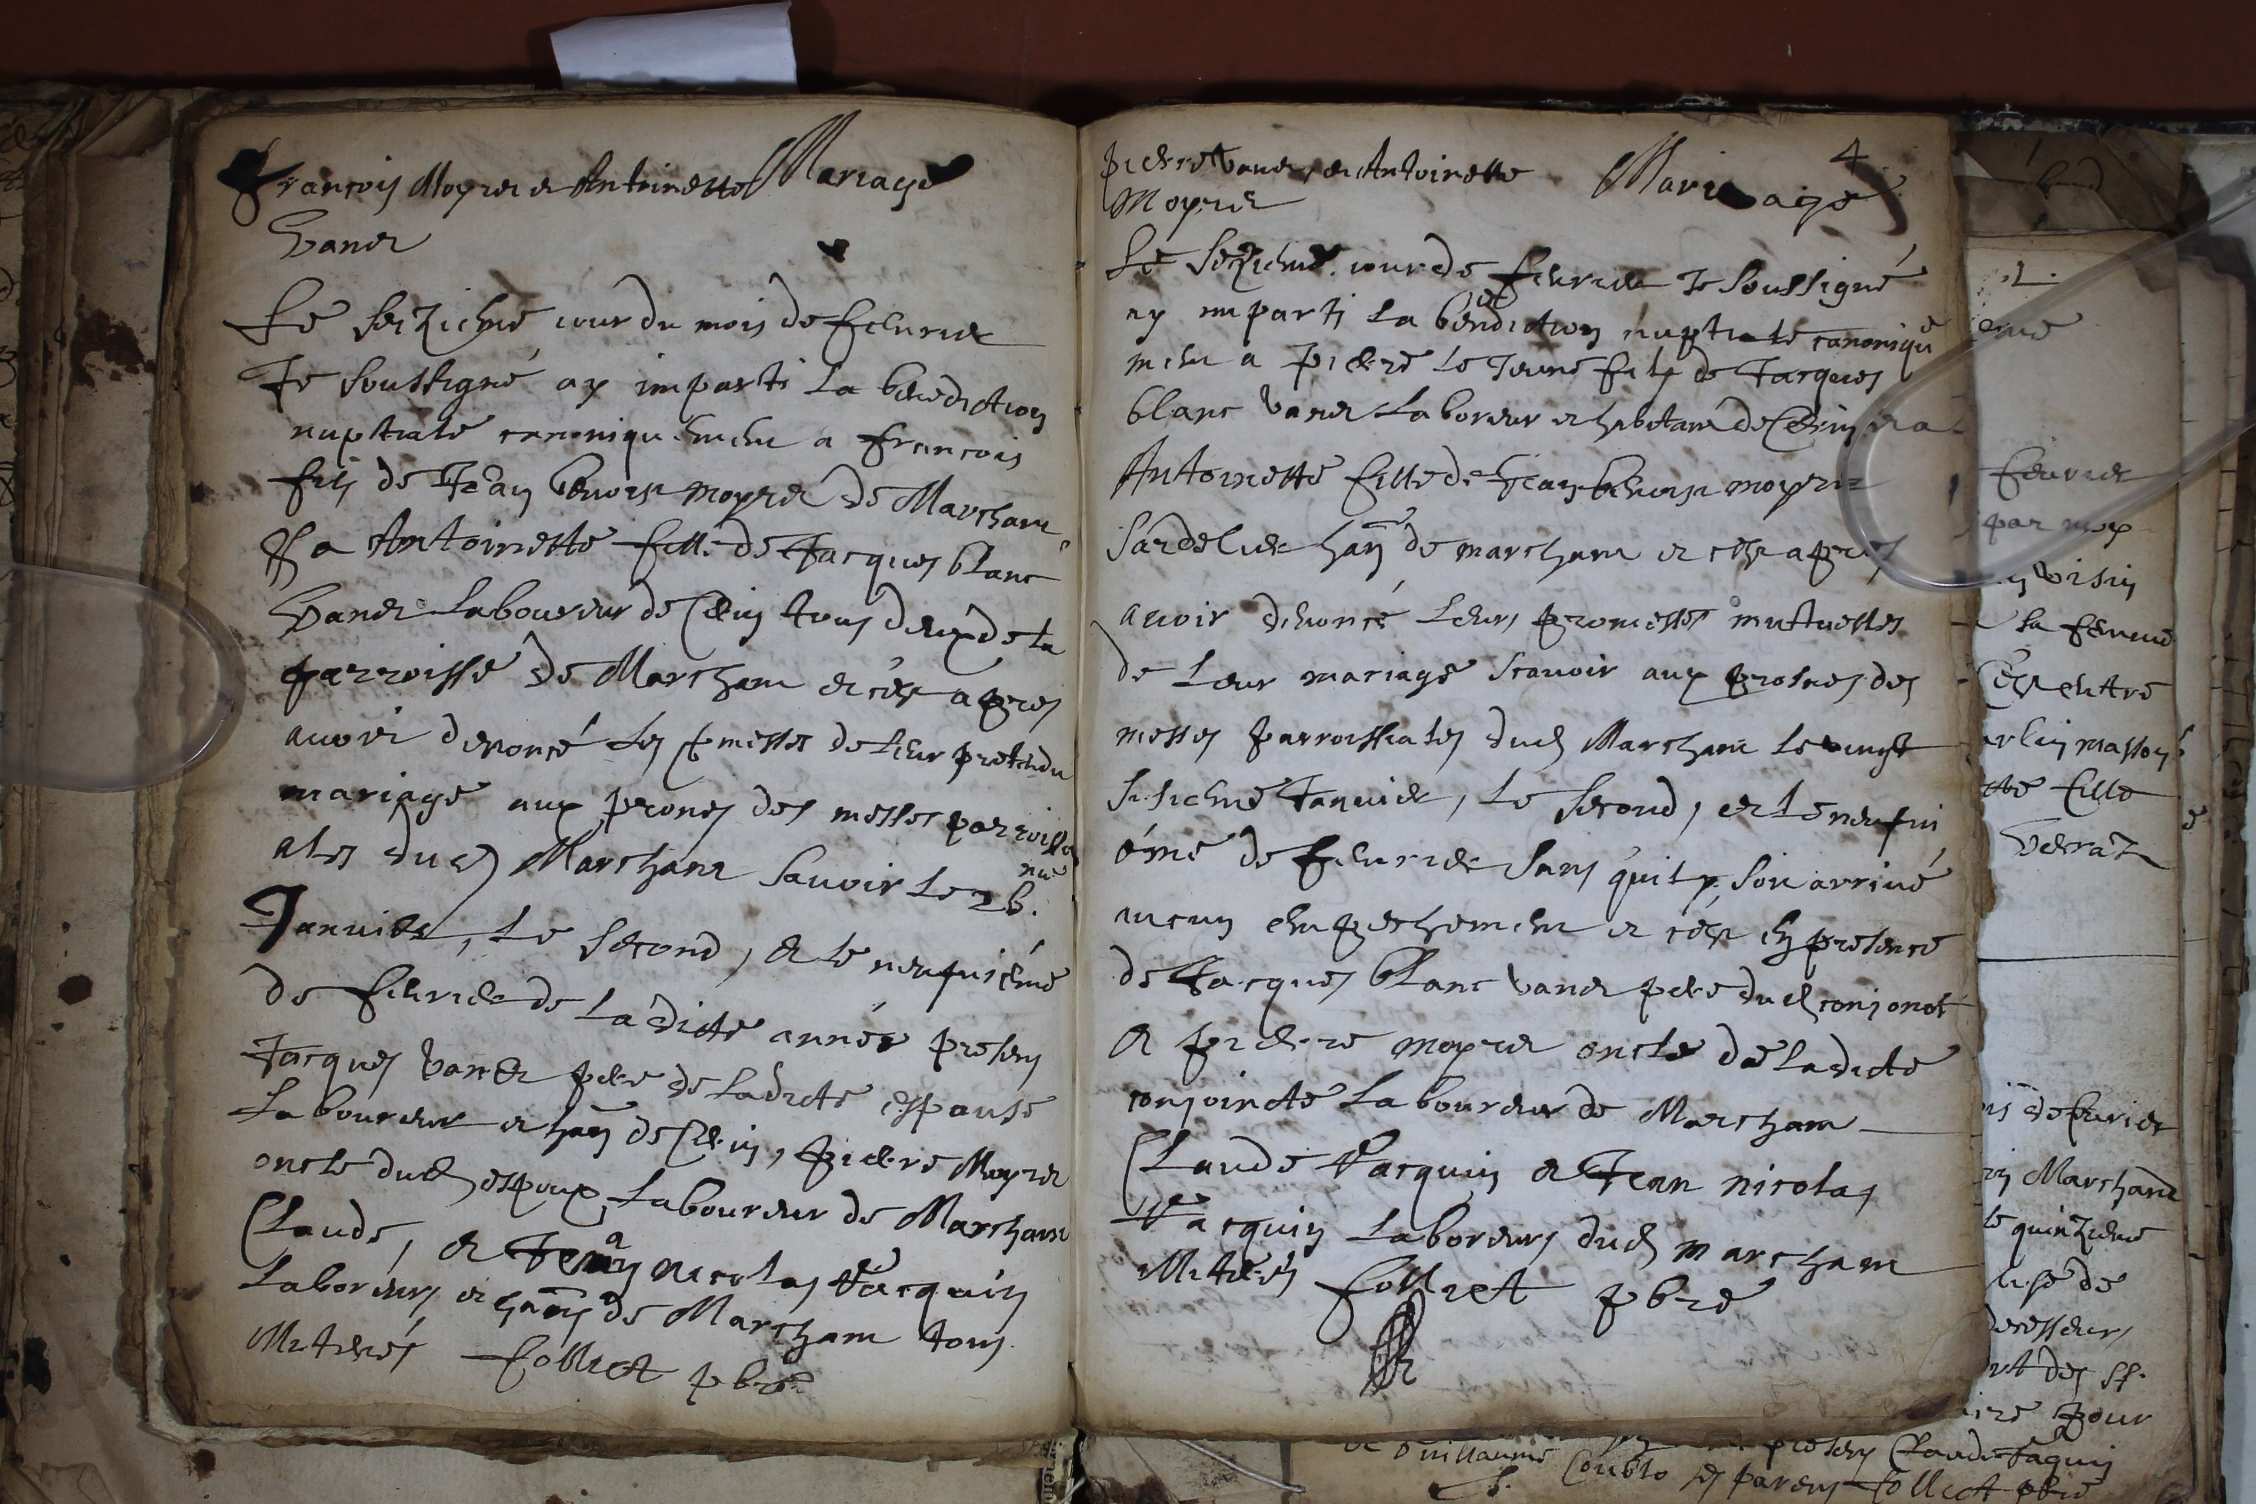 françois Moyret et Antoinette Mariage
Vanet
Le seizieme jour du mois de feburier
Je soussigné ay imparti la benediction
nuptiale canoniquement a françois
fils de Jean benoist moyret de Marcham
& a Antoinette fille de Jacques blanc
Vanet laboureur de Cerin tous deux de la
parroisse de Marcham et c'est apres
avoir denoncé les pmesses de leur pretendu
mariage aux prones des messes parroissi
ales dud Marcham savoir le 26.me
Januier, le second, et le neufuiéme
de feburier de ladicte année presens
Jacques vanet pere de ladicte espouse
laboureur et han de Cerin, pierre Moyret
oncle dud espoux laboureur de Marcham
Claude, et Jean nicolas Jacquin
laboreurs et hans de Marcham tous
illiterés Colliet pbre
pierre vanet, et Antoinette Mariage 4
Moyret
Le sezieme jour de feburier Je soussigné
ay imparti la benediction nuptiale canonique
ment a pierre le Jeune fils de Jacques
blanc vanet laboreur et habitant de Cerin et a
Antoinette fille de Jean benoist moyret
sardelier han de marcham et c'est apres
avoir denoncé leurs promesses mutuelles
de leur mariage scavoir aux prosnes des
messes parroissiales dud Marcham le vingt
sisieme Januier, le second, et le neufui
éme de feburier sans qu'il y soit arrivé
aucun empeschement et c'est en presence
de Jacques blanc vanet pere dud conjonct
et pierre moyret oncle de ladicte
conjoincte laboureur de Marcham
Claude Jacquin et Jean nicolas
Jacquin laboreurs dud marcham
illiterés Colliet pbre
eme
feburier
par moy
voisin
la femme
C'est entre
masson
fille
Verrat
de feburier
Marchant
le quinzieme
de
des
pour
Guillaume presens Claude Jaquin
parens Colliet pbre